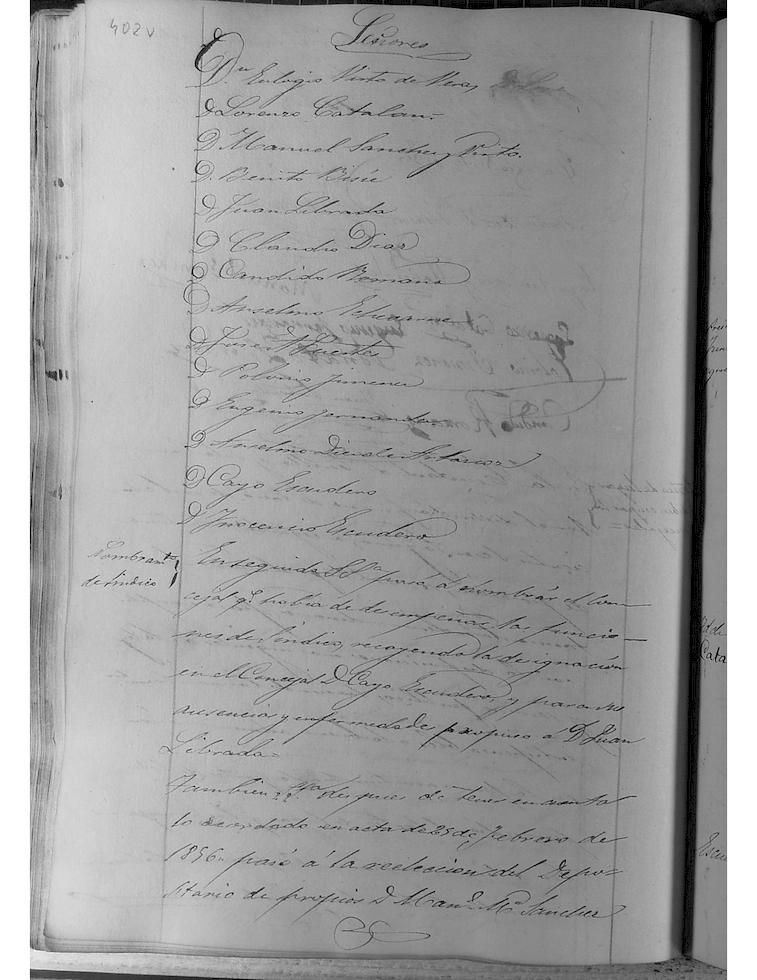 402v
Señores
Dn Eulogio Virto de Vera,
D Lorenzo Catalan=
D Manuel Sanchez y Virto.
D. Benito Bisié
D Juan Librada
D Claudio Diaz
D Candido Romano
D Anselmo
D Puerta
D Polonio Jimenez
D Eugenio Fernandez
D Anselmo Diez de
D Cayo Escudero
D Ynocencio Escudero
Nombramto
de Sindico
Enseguida S.Sa pasó á nombrar el Con-
cejal qe habia de desempeñar las funcio-
nes de Sindico, recayendo la designación
en el Concejal D Cayo Escudero, y para sus
ausencias y enfermedades propuso á D Juan
Librada=
Tambien S.Sa despues de tener en cuenta
lo acordado en acta de 25 de Febrero de
1856= pasó á la reeleccion del Depo-
sitario de propios D Manl Ma Sanchez